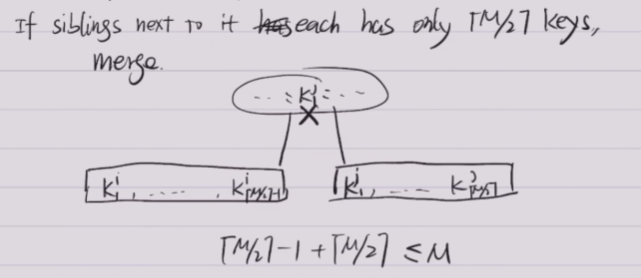 If siblings next to it each has only ⌈M/2⌉ keys,
merge.
... : K₁ʲ : ...
K₁ⁱ, ..... , Kⁱ⌈M/2⌉-1
K₁ʲ, .... Kʲ⌈M/2⌉
⌈M/2⌉-1 + ⌈M/2⌉ ≤ M